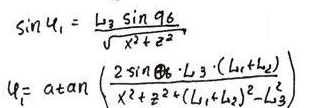 sin φ₁ = L₃ sin q6 / √(x² + z²)
φ₁ = atan (2 sin θ6 · L3 · (L1+L2) / x² + z² + (L1+L2)² - L3²)